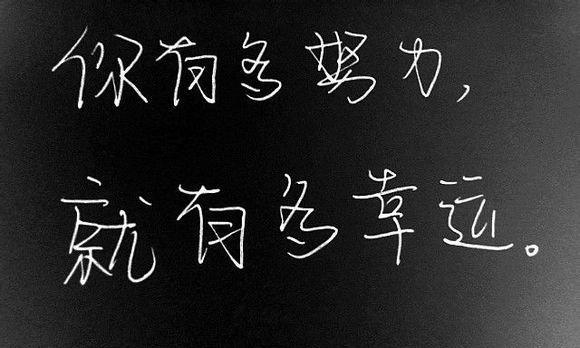 你有多努力,
就有多幸运。